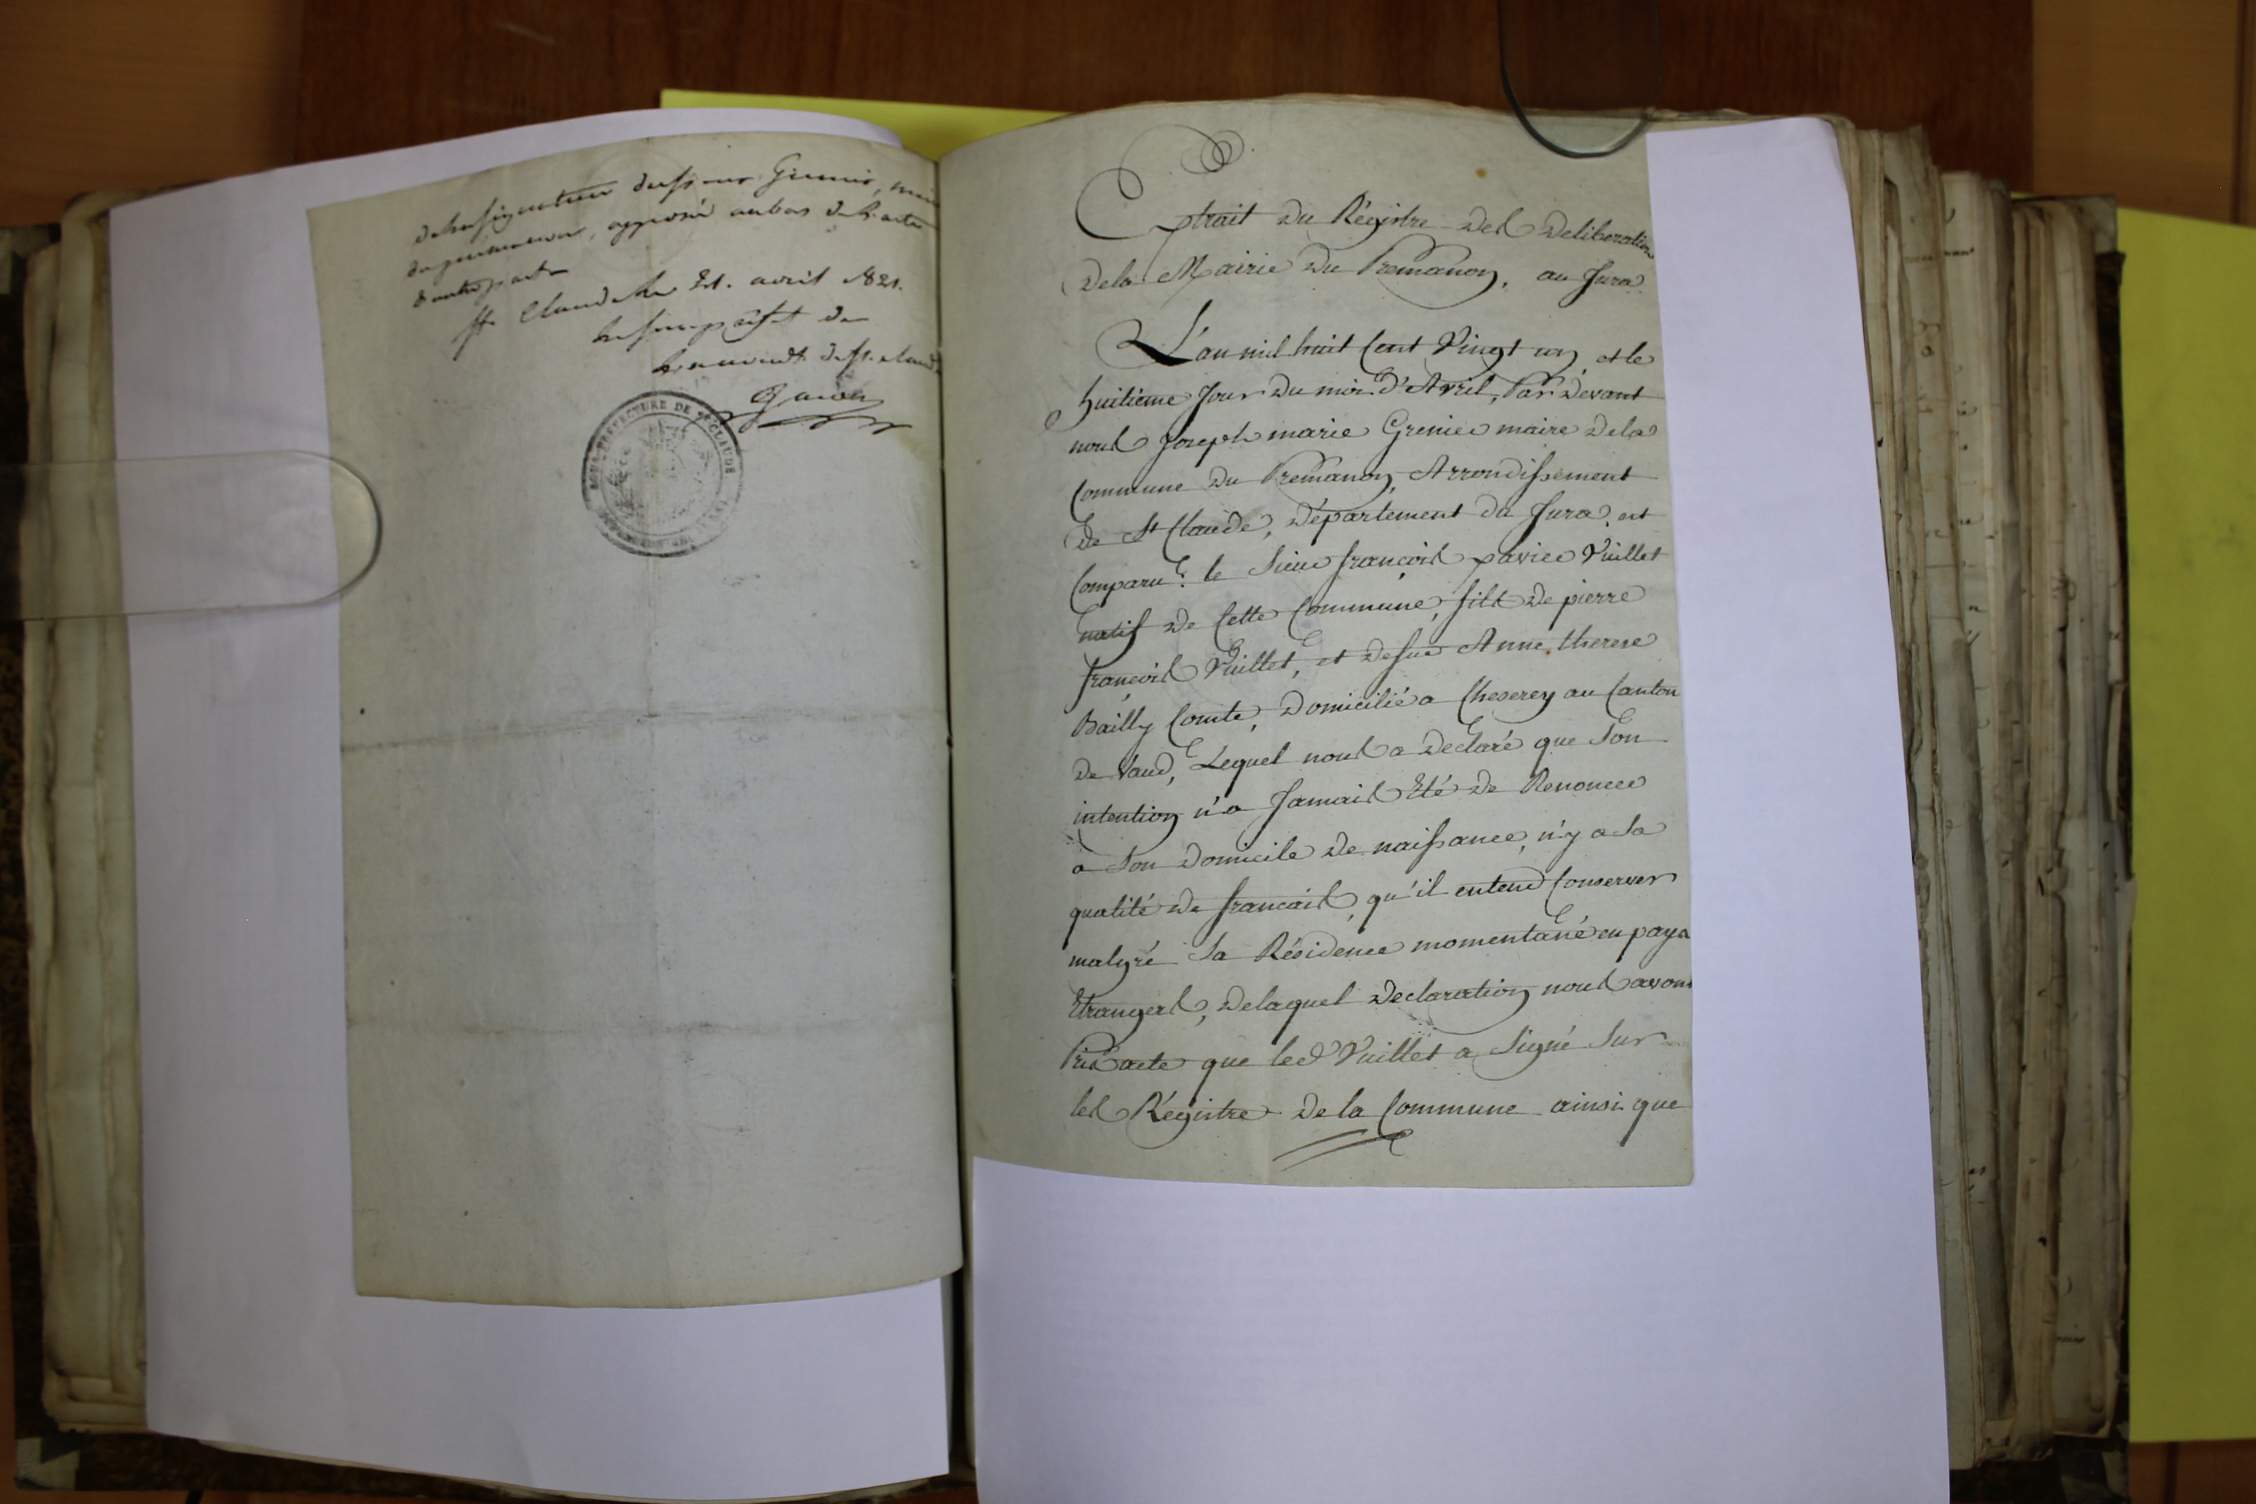 de la signature du sieur Grenier, maire
de premanon, apposée au bas de l'acte
d'autre part
St. Claude le 21. avril 1821.
le sous préfet de
l'arrondt. de St. claude
SOUS-PREFECTURE DE ST CLAUDE
Extrait du Régistre des deliberations
de la Mairie du Premanon, au Jura
L'an mil huit Cent Vingt un, et le
huitième Jour du mois d'Avril, Par devant
nous Joseph marie Grenier maire de la
Commune du Premanon, Arrondissement
de St Claude, département du Jura, est
Comparu: le Sieur françois xavier Vuillet
natif de Cette Commune, fils de pierre
françois Vuillet, et de fue Anne therese
Bailly Comte, domicilié a Cheserey au Canton
de Vaud, Lequel nous a declaré que Son
intention n'a Jamais Eté de Renoncer
a Son domicile de naissance, n'y a Sa
qualité de francais, qu'il entend Conserver
malgré Sa Résidence momentané en pays
Etrangers, delaquel declaration nous avons
Pris acte que led Vuillet a Signé Sur
les Régistre de la Commune ainsi que